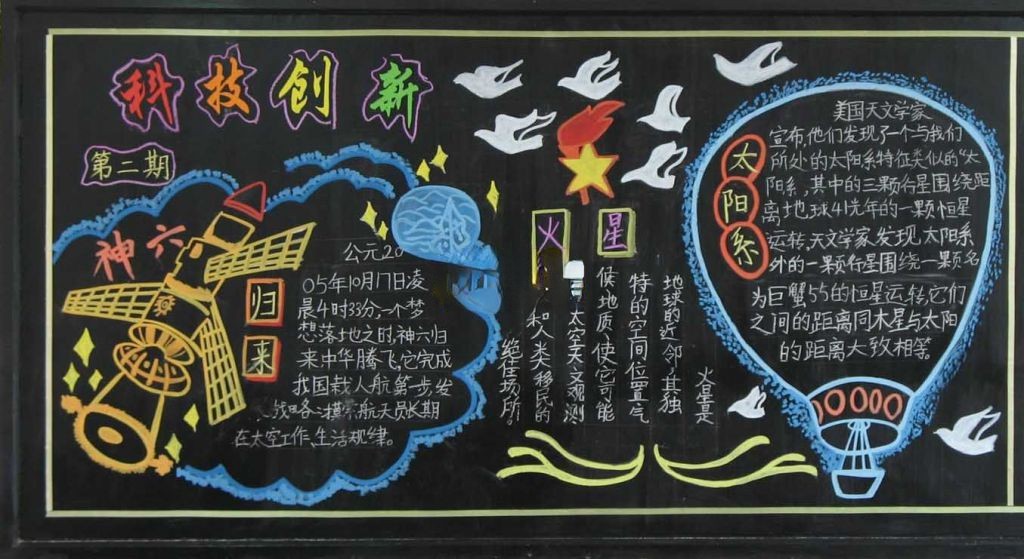 科技创新
第二期
神六
归来
公元20
05年10月17日凌
晨4时33分,一个梦
想落地之时,神六归
来中华腾飞,它完成
我国载人航第一步,发
航天员长期
在太空工作、生活规律。
火星
火星是
地球的近邻,其独
特的空间位置气
候地质,使它可能
太空天文观测
和人类移民的
绝佳场所。
太阳系
美国天文学家
宣布,他们发现了一个与我们
所处的太阳系特征类似的“太
阳系,其中的三颗行星围绕距
离地球41光年的一颗恒星
运转,天文学家发现太阳系
外的一颗行星围绕一颗名
为巨蟹55的恒星运转,它们
之间的距离同木星与太阳
的距离大致相等。